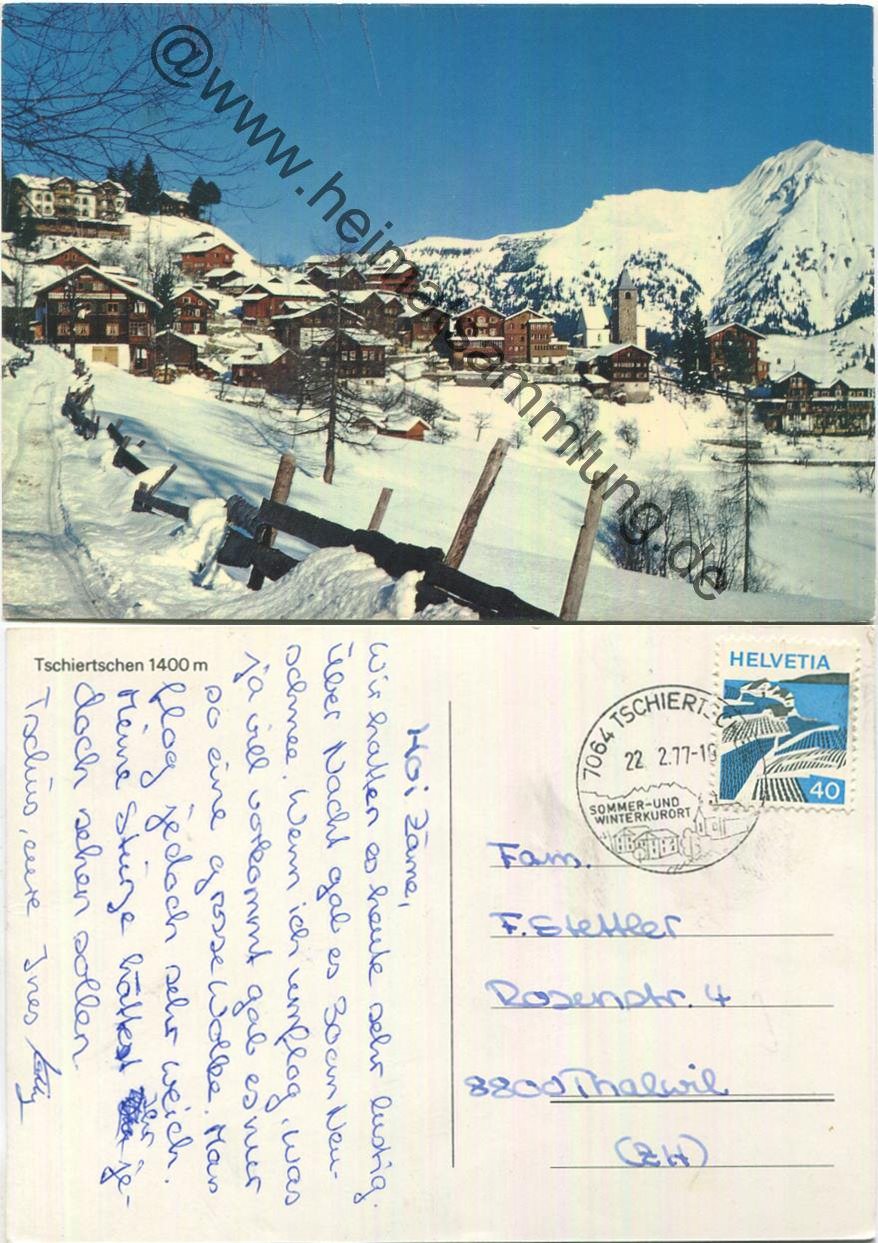 @www.heimatsammlung.de
Tschiertschen 1400 m
Hoi Zäme,
Wir hatten es heute sehr lustig.
Über Nacht gab es 30cm Neu-
schnee. Wenn ich umflog, was
ja viel vorkommt gab es nur
so eine grosse Wolke. Man
flog jedoch sehr weich.
Meine Stürze hättet Ihr je-
doch sehen sollen
Tschüss, eure Ines
HELVETIA
40
7064 TSCHIERTSCHEN
22. 2.77-18
SOMMER-UND
WINTERKURORT
Fam.
F. Stettler
Rosenstr. 4
8800 Thalwil
(ZH)